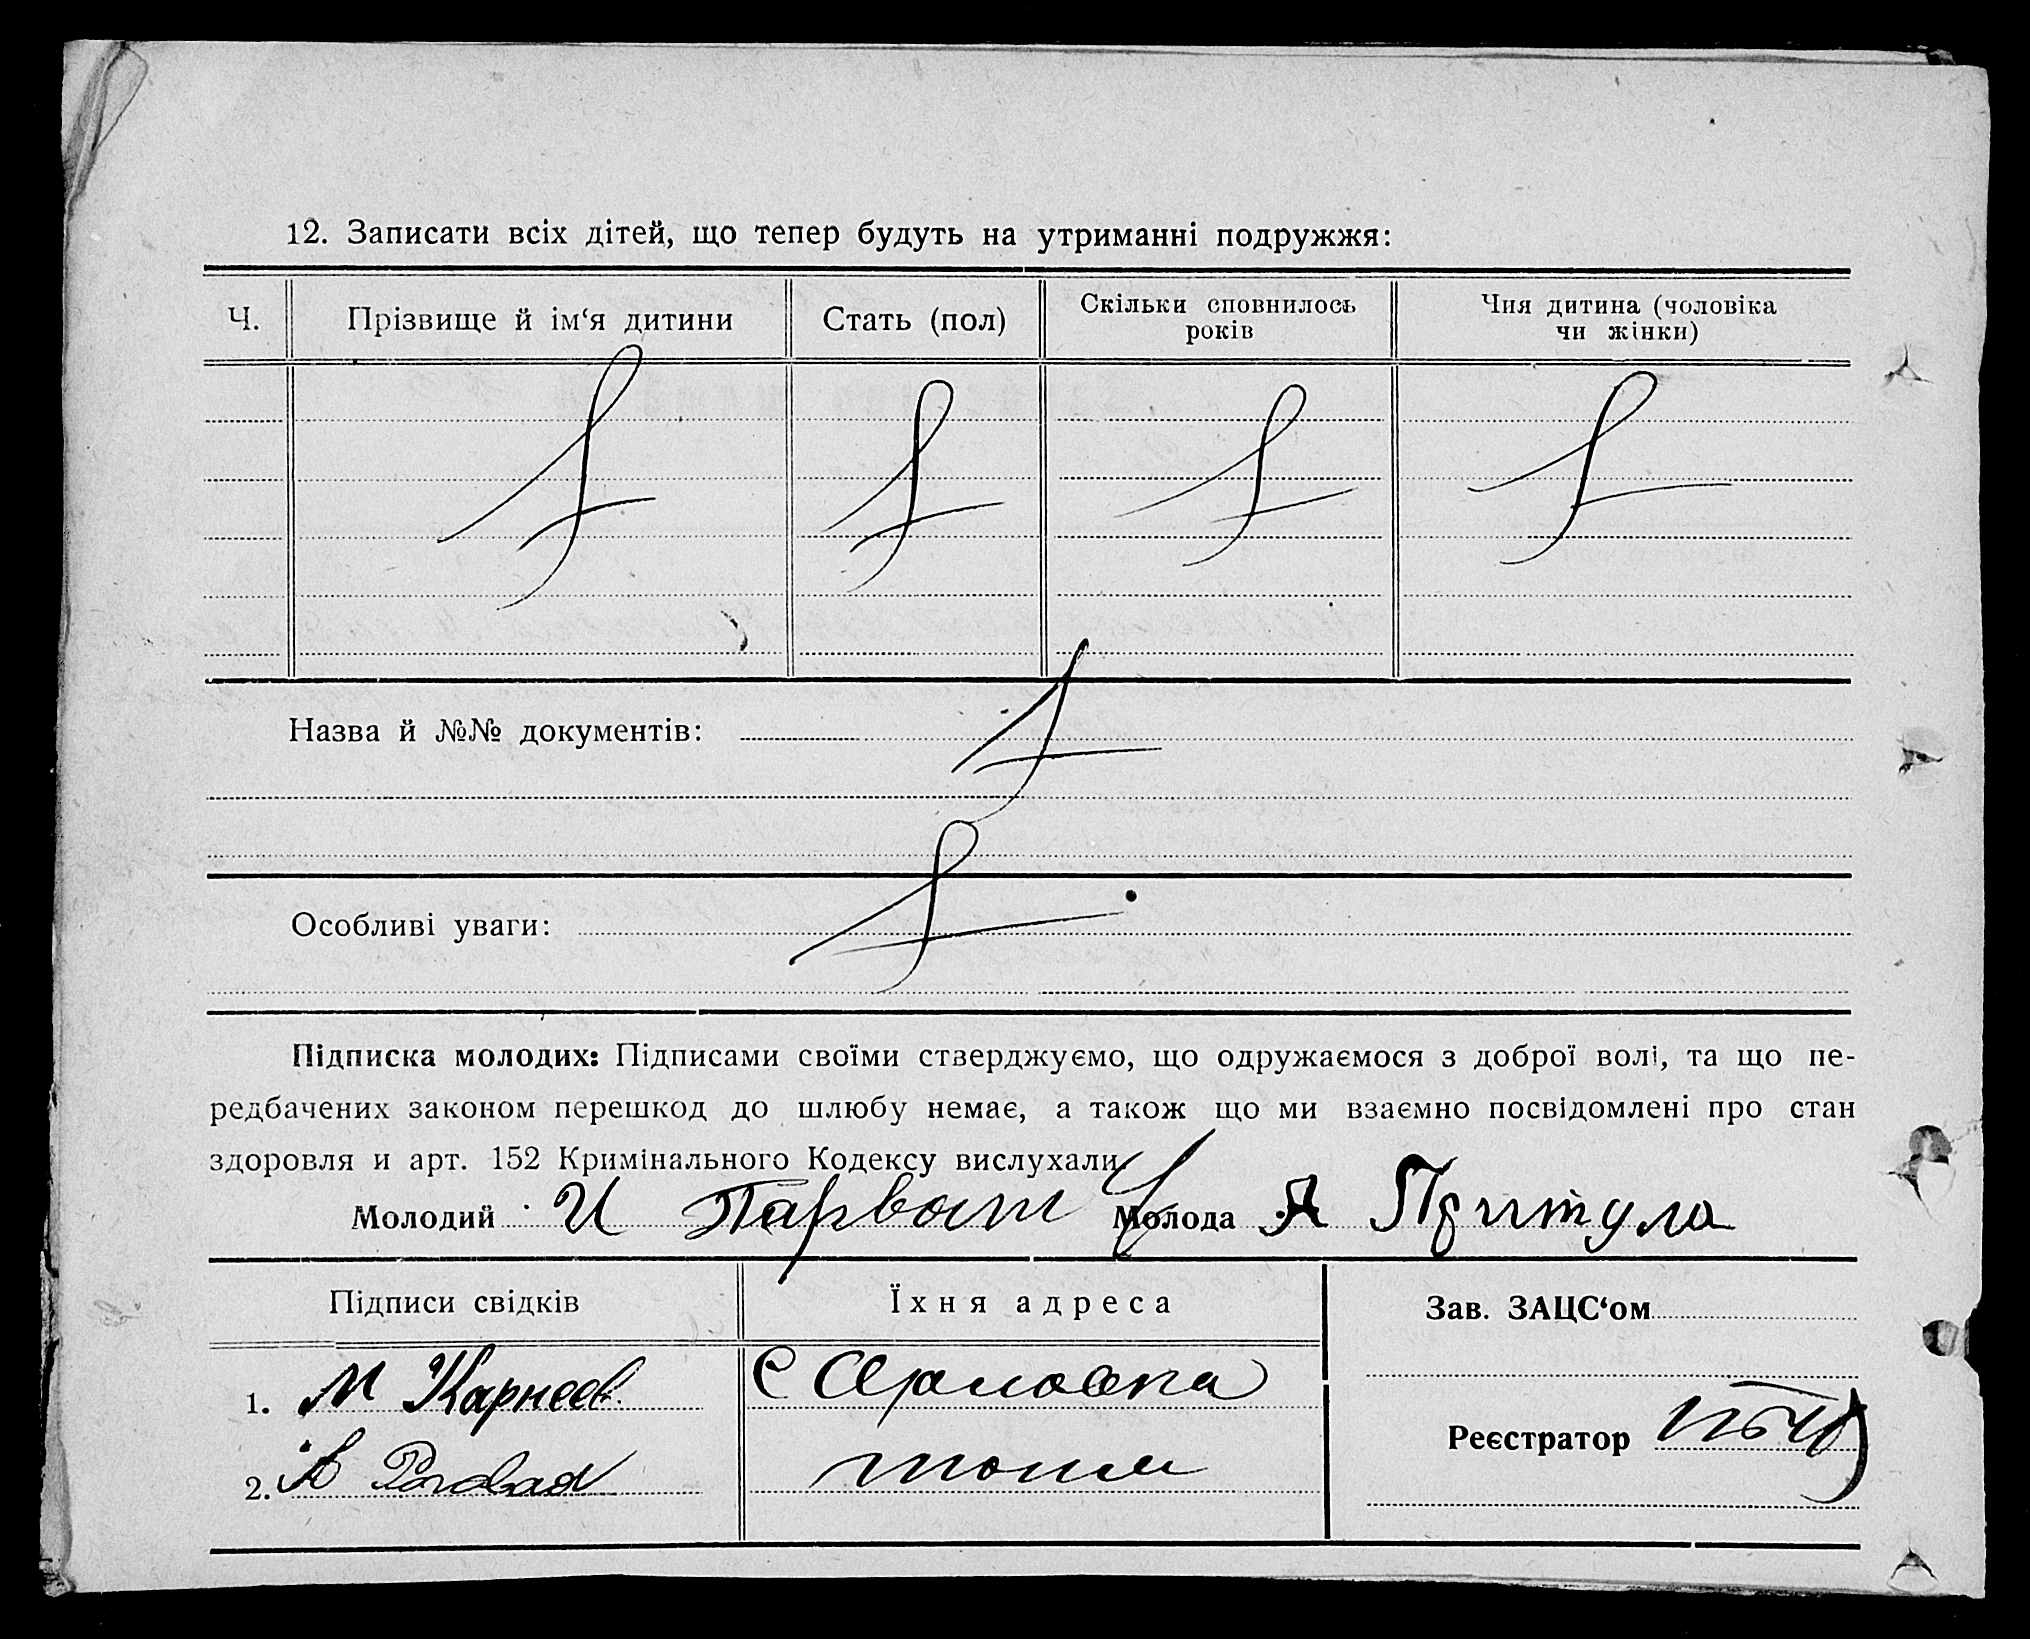 12. Записати всіх дітей, що тепер будуть на утриманні подружжя:
Ч.
Прізвище й ім‘я дитини
Стать (пол)
Скільки сповнилось
років
Чия дитина (чоловіка
чи жінки)
Назва й №№ документів:
Особливі уваги:
Підписка молодих: Підписами своїми стверджуємо, що одружаємося з доброї волі, та що пе-
редбачених законом перешкод до шлюбу немає, а також що ми взаємно посвідомлені про стан
здоровля и арт. 152 Кримінального Кодексу вислухали.
Молодий И Парват Молода А Притула
Підписи свідків
Їхня адреса
Зав. ЗАЦС‘ом
1. М Карнеев
С
2. А
Реєстратор